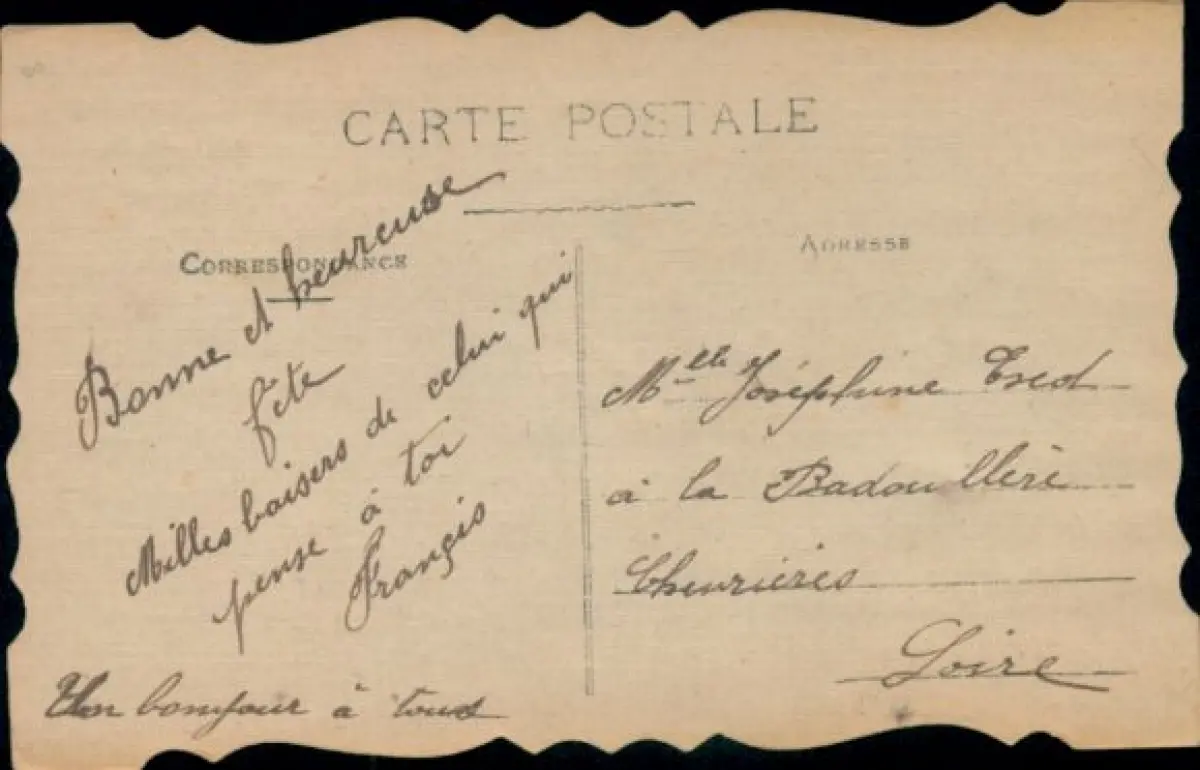 CARTE POSTALE
CORRESPONDANCE
Bonne et heureuse
fête
Milles baisers de celui qui
pense à toi
François
Un bonjour à tous
ADRESSE
Mlle Joséphine
à la Badouillère
Chevrières
Loire